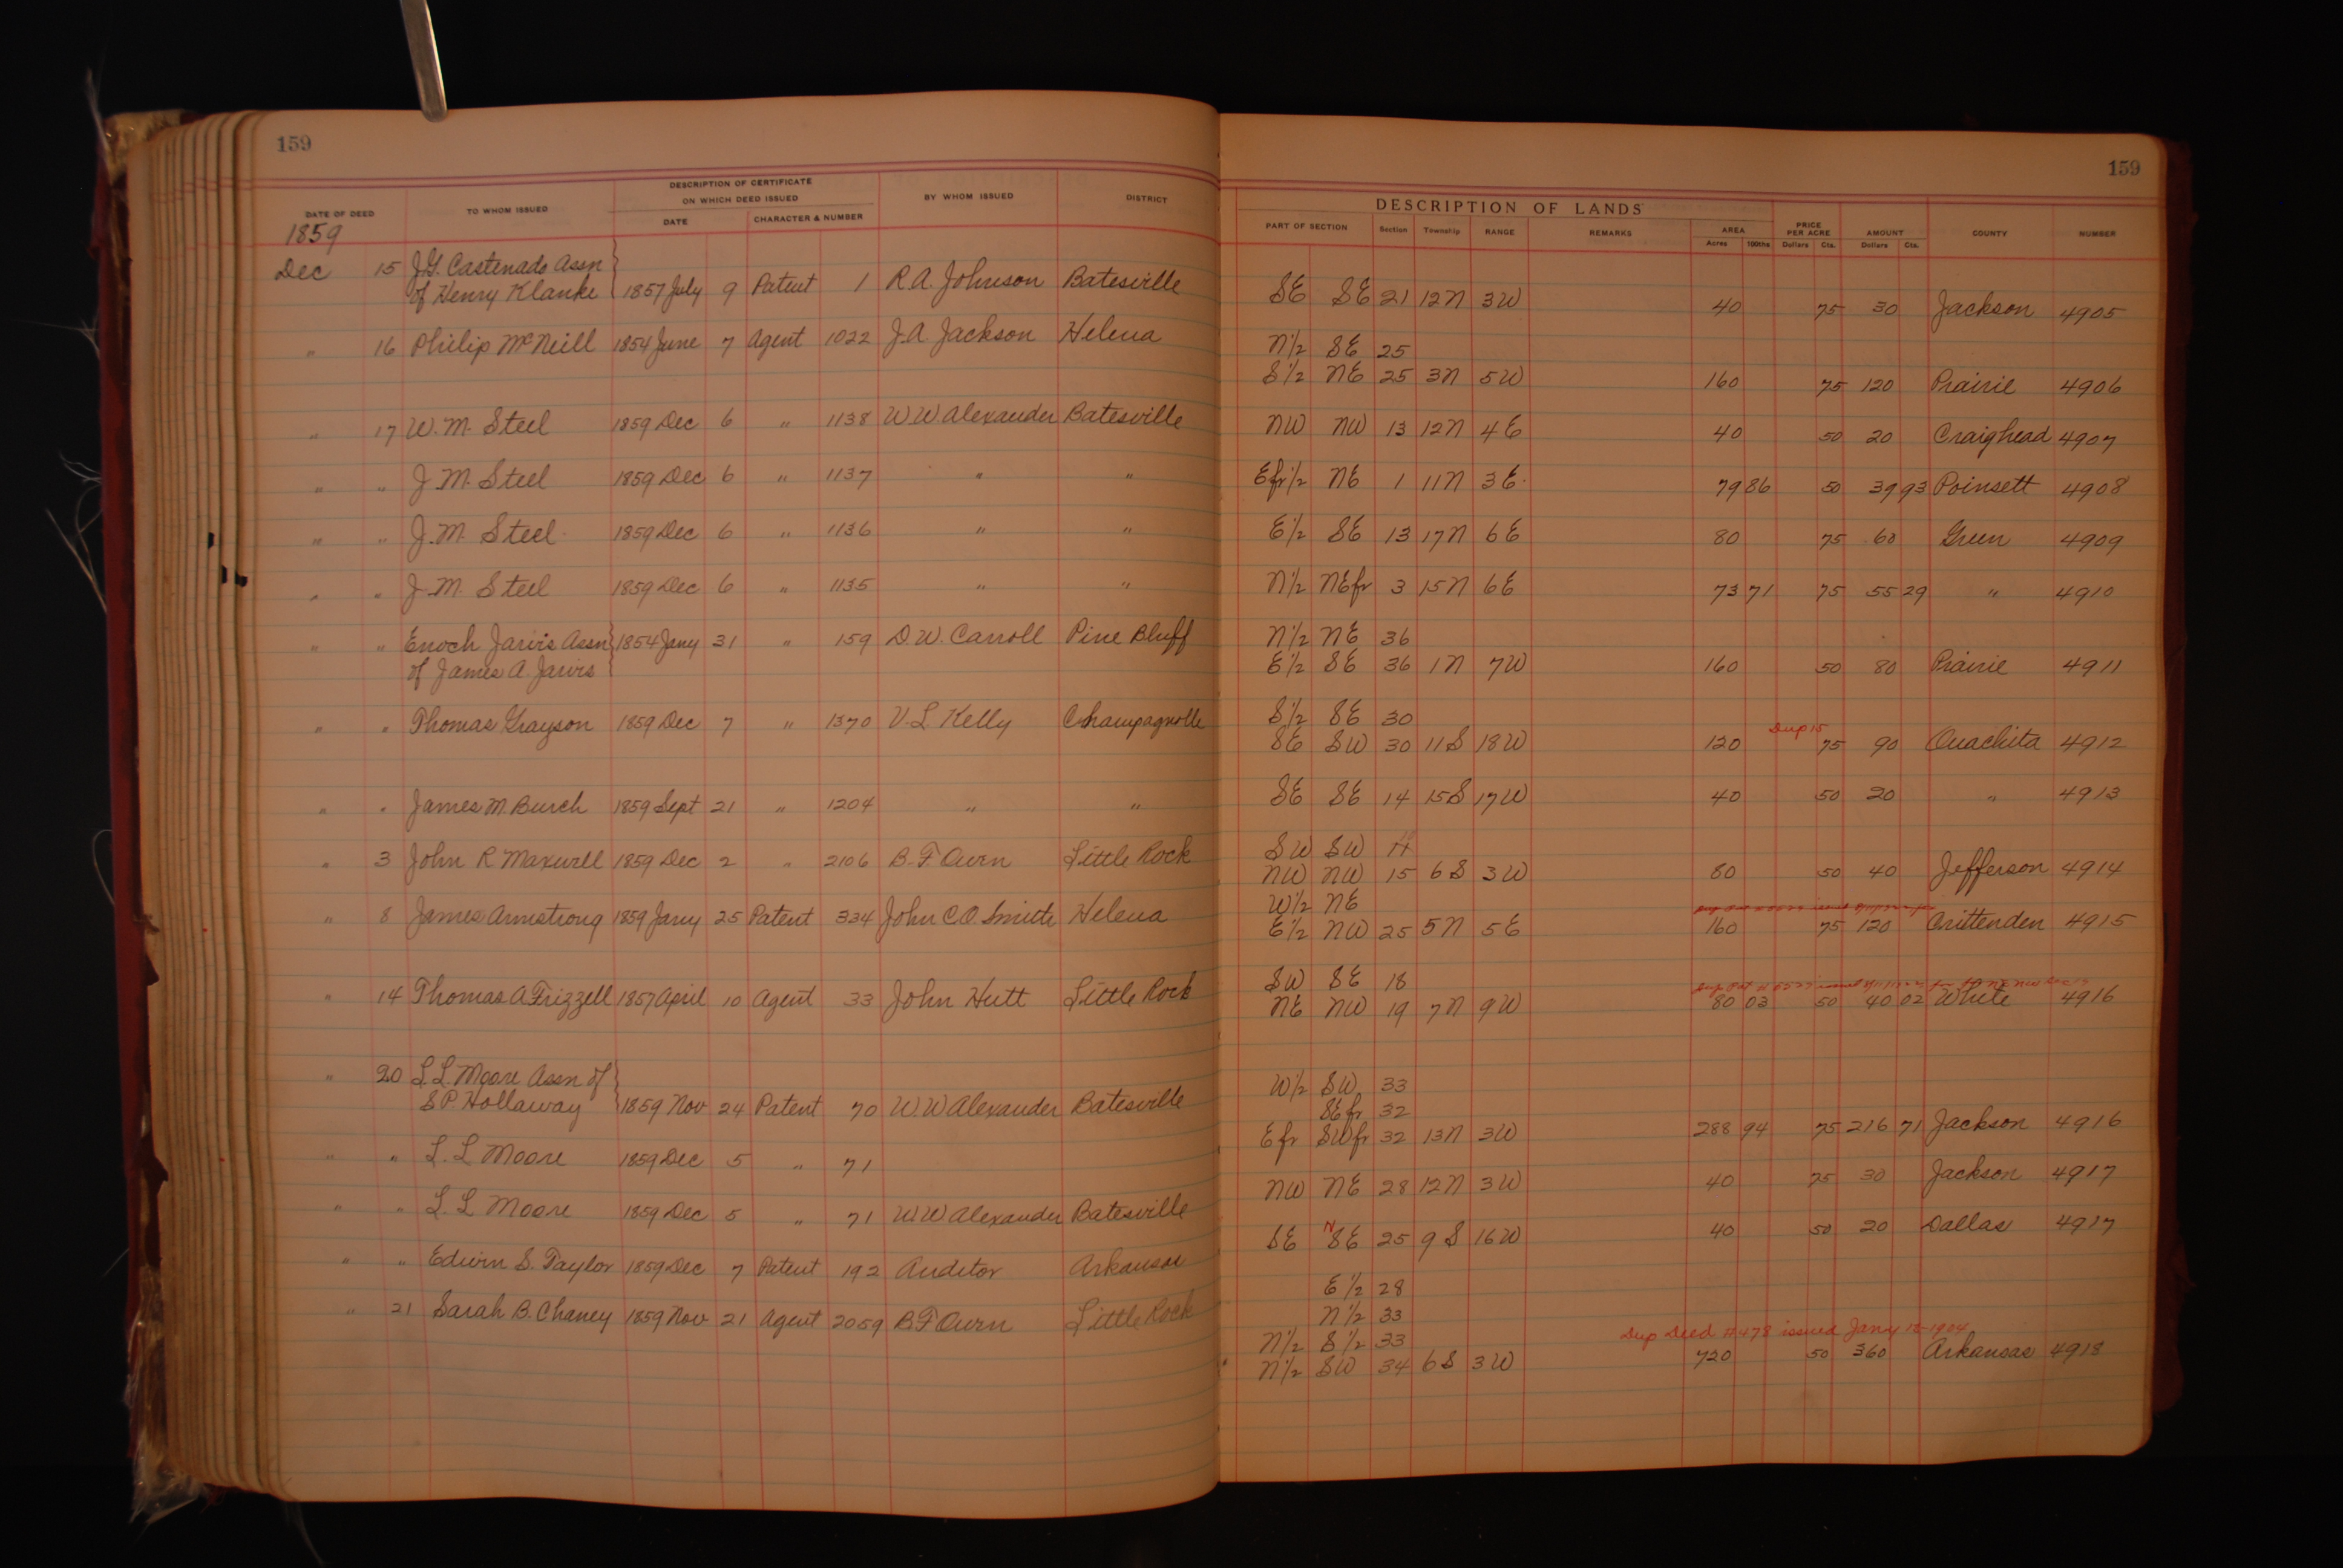 159
DESCRIPTION OF CERTIFICATE
ON WHICH DEED ISSUED
DATE OF DEED TO WHOM ISSUED DATE CHARACTER & NUMBER BY WHOM ISSUED DISTRICT
1859
Dec 15 J.G. Castenado Assn
of Henry Klanke 1857 July 9 Patent 1 R A. Johnson Batesville
" 16 Philip McNeill 1854 June 7 Agent 1022 J.A. Jackson Helena
" 17 W. M. Steel 1859 Dec 6 " 1138 W W Alexander Batesville
" " J. M. Steel 1859 Dec 6 " 1137 " "
" " J. M. Steel 1859 Dec 6 " 1136 " "
" " J. M. Steel 1859 Dec 6 " 1135 " "
" " Enoch Jarvis Assn 1854 Jany 31 " 159 D. W. Carroll Pine Bluff
of James A. Jarvis
" " Thomas Grayson 1859 Dec 7 " 1370 V. L Kelly Champagnolle
" " James M. Burch 1859 Sept 21 " 1204 " "
" 3 John R Maxwell 1859 Dec 2 " 2106 B. F. Owen Little Rock
" 8 James Armstrong 1859 Jany 25 Patent 334 John C.O. Smith Helena
" 14 Thomas A Frizzell 1857 April 10 Agent 33 John Hutt Little Rock
" 20 L. L. Moore Assn of
S P. Hollaway 1859 Nov 24 Patent 70 W. W Alexander Batesville
" " L. L Moore 1859 Dec 5 " 71
" " L L Moore 1859 Dec 5 " 71 W W Alexander Batesville
" " Edwin S. Taylor 1859 Dec 7 Patent 192 Auditor Arkansas
" 21 Sarah B. Chaney 1859 Nov 21 Agent 2059 B. F Owen Little Rock
159
DESCRIPTION OF LANDS
PART OF SECTION Section Township RANGE REMARKS AREA PRICE PER ACRE AMOUNT COUNTY NUMBER
Acres 100ths Dollars Cts. Dollars Cts.
SE SE 21 12N 3W 40 75 30 Jackson 4905
N 1/2 SE 25
S 1/2 NE 25 3N 5W 160 75 120 Prairie 4906
NW NW 13 12N 4E 40 50 20 Craighead 4907
E fr 1/2 NE 1 11N 3E 79 86 50 39 93 Poinsett 4908
E 1/2 SE 13 17N 6E 80 75 60 Green 4909
N 1/2 NE fr 3 15N 6E 73 71 75 55 29 " 4910
N 1/2 NE 36
E 1/2 SE 36 1N 7W 160 50 80 Prairie 4911
S 1/2 SE 30
Dup 15
SE SW 30 11S 18W 120 75 90 Ouachita 4912
SE SE 14 15S 17W 40 50 20 " 4913
SW SW
NW NW 15 6S 3W 80 50 40 Jefferson 4914
W 1/2 NE
E 1/2 NW 25 5N 5E 160 75 120 Crittenden 4915
SW SE 18
NE NW 19 7N 9W 80 03 50 40 02 White 4916
W 1/2 SW 33
SE fr 32
E fr SW fr 32 13N 3W 288 94 75 216 71 Jackson 4916
NW NE 28 12N 3W 40 75 30 Jackson 4917
N
SE SE 25 9S 16W 40 50 20 Dallas 4917
E 1/2 28
N 1/2 33
Dup Deed #478 issued Jany 18-1904
N 1/2 S 1/2 33
N 1/2 SW 34 6S 3W 720 50 360 Arkansas 4918